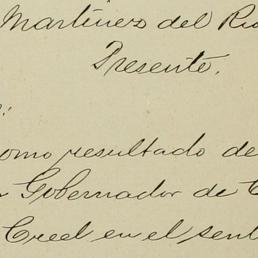 Martínez del Río
Presente.
:
como resultado de
Gobernador de
Creel en el sent